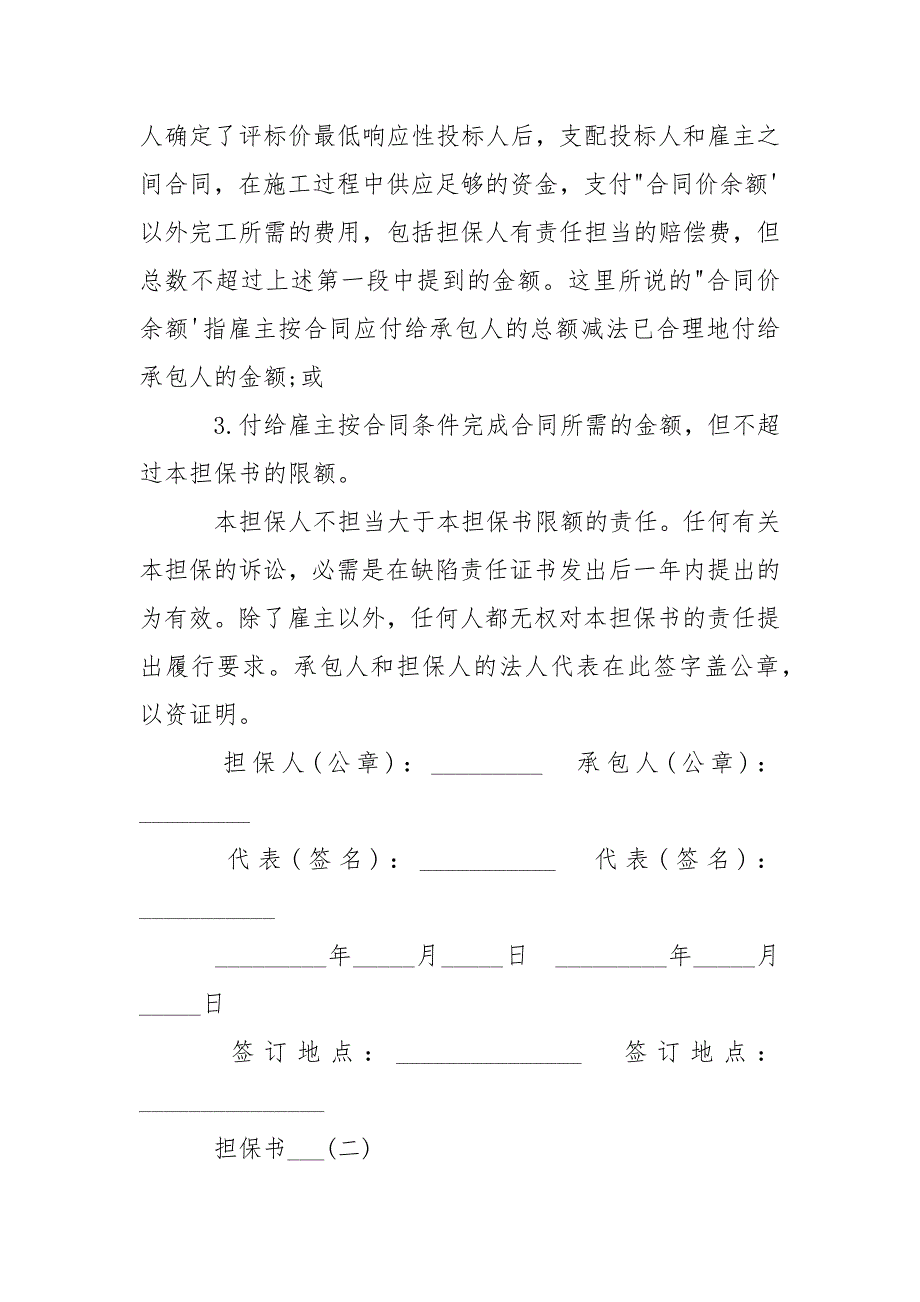 人确定了评标价最低响应性投标人后，支配投标人和雇主之
间合同，在施工过程中供应足够的资金，支付"合同价余额'
以外完工所需的费用，包括担保人有责任担当的赔偿费，但
总数不超过上述第一段中提到的金额。这里所说的"合同价
余额'指雇主按合同应付给承包人的总额减法已合理地付给
承包人的金额;或
3.付给雇主按合同条件完成合同所需的金额，但不超
过本担保书的限额。
本担保人不担当大于本担保书限额的责任。任何有关
本担保的诉讼，必需是在缺陷责任证书发出后一年内提出的
为有效。除了雇主以外，任何人都无权对本担保书的责任提
出履行要求。承包人和担保人的法人代表在此签字盖公章，
以资证明。
担保人(公章)：_________ 承包人(公章)：
_________
代表(签名)：___________ 代表(签名)：
___________
_________年_____月_____日 _________年_____月
_____日
签订地点：_______________ 签订地点：
_______________
担保书___(二)